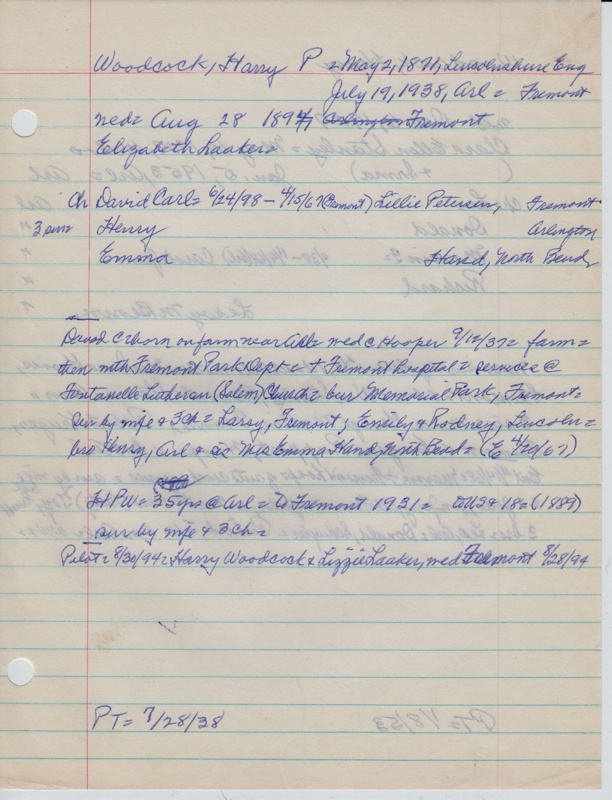 Woodcock, Harry P = May 2, 1871, Lincolnshire Eng
July 19, 1938, Arl = Fremont
med = Aug 28 1894, Arlington Fremont
Elizabeth Laaker =
Ch David Carl = 6/24/98 - 4/15/67 (Fremont) Lillie Petersen, Fremont
3 surv Henry Arlington
Emma Hand, North Bend
David C = born on farm near Arl = med @ Hooper 9/12/37 = farm =
then with Fremont Park Dept = + Fremont hospital = services @
Fontanelle Lutheran (Salem) Church = bur Memorial Park, Fremont =
sur by wife & 3 ch = Larry, Fremont; Emily & Rodney, Lincoln =
bro Henry, Arl & sis Mrs Emma Hand, North Bend = (E 4/20/67)
HPW = 35 yrs @ Arl = to Fremont 1931 = to US @ 18 = (1889)
sur by wife & 3 ch =
Pilot = 8/30/94 = Harry Woodcock & Lizzie Laaker, med Fremont 8/28/94
PT = 7/28/38